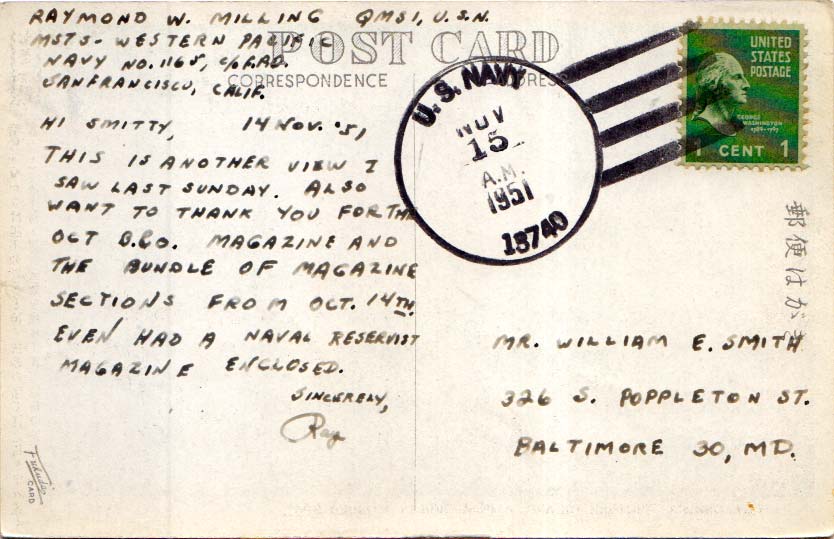 RAYMOND W. MILLING QMS1, U.S.N.
MSTS - WESTERN PACIFIC
NAVY NO. 1165, C/O F.P.O.
SAN FRANCISCO, CALIF.
POST CARD
CORRESPONDENCE
ADDRESS
HI SMITTY, 14 NOV. '51
THIS IS ANOTHER VIEW I
SAW LAST SUNDAY. ALSO
WANT TO THANK YOU FOR THE
OCT B.&O. MAGAZINE AND
THE BUNDLE OF MAGAZINE
SECTIONS FROM OCT. 14TH.
EVEN HAD A NAVAL RESERVIST
MAGAZINE ENCLOSED.
SINCERELY,
Ray
U.S. NAVY
NOV
15
A.M.
1951
13740
UNITED
STATES
POSTAGE
GEORGE
WASHINGTON
1789-1797
1 CENT 1
郵便はがき
MR. WILLIAM E. SMITH
326 S. POPPLETON ST.
BALTIMORE 30, MD.
CARD